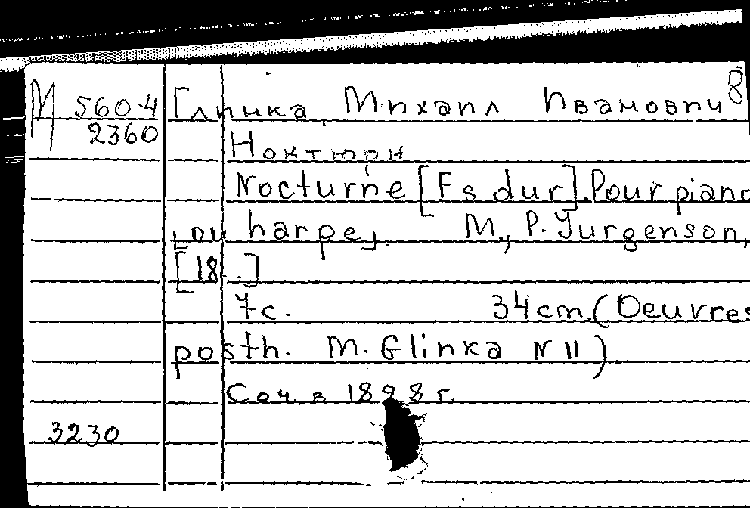 М 560-4 Глинка, Михаил Иванович 8
2360
Ноктюрн
Nocturne [Fs dur]. Pour piano
[ou harpe]. M., P. Jurgenson,
[18 . .]
7 с. 34 cm. (Oeuvres
posth. M. Glinka N 11)
Соч. в 1828 г.
3230